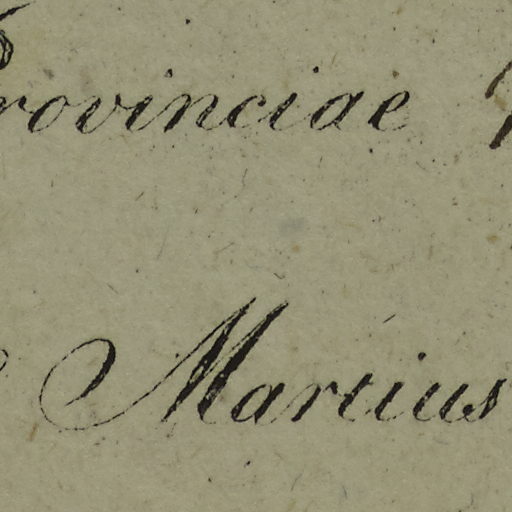 Provinciae
Martius